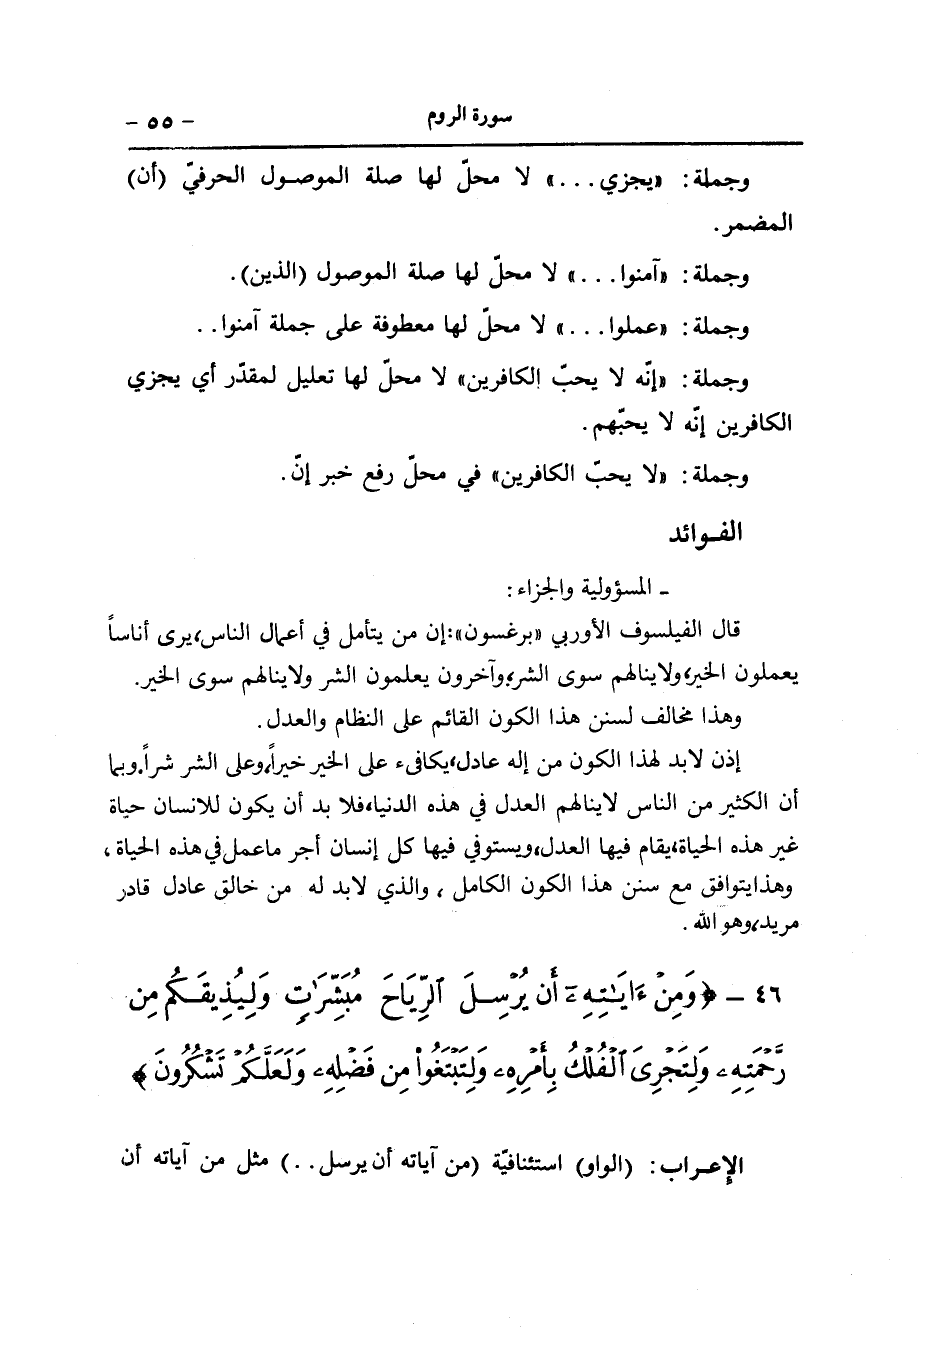 سورة الروم - ٥٥ -
وجملة: «يجزي...» لا محلّ لها صلة الموصول الحرفيّ (أن)
المضمر.
وجملة: «آمنوا...» لا محلّ لها صلة الموصول (الذين).
وجملة: «عملوا...» لا محلّ لها معطوفة على جملة آمنوا..
وجملة: «إنّه لا يحبّ الكافرين» لا محلّ لها تعليل لمقدّر أي يجزي
الكافرين إنّه لا يحبّهم.
وجملة: «لا يحبّ الكافرين» في محلّ رفع خبر إنّ.
الفوائد
- المسؤولية والجزاء:
قال الفيلسوف الأوربي «برغسون»: إن من يتأمل في أعمال الناس، يرى أناساً
يعملون الخير، ولاينالهم سوى الشر، وآخرون يعلمون الشر ولاينالهم سوى الخير.
وهذا مخالف لسنن هذا الكون القائم على النظام والعدل.
إذن لابد لهذا الكون من إله عادل، يكافىء على الخير خيراً، وعلى الشر شراً. وبما
أن الكثير من الناس لاينالهم العدل في هذه الدنيا، فلا بد أن يكون للانسان حياة
غير هذه الحياة، يقام فيها العدل، ويستوفي فيها كل إنسان أجر ماعمل في هذه الحياة،
وهذا يتوافق مع سنن هذا الكون الكامل، والذي لابد له من خالق عادل قادر
مريد، وهو الله.
٤٦ - ﴿وَمِنْ ءَايَٰتِهِۦٓ أَن يُرْسِلَ ٱلرِّيَاحَ مُبَشِّرَٰتٍ وَلِيُذِيقَكُم مِن
رَّحْمَتِهِۦ وَلِتَجْرِىَ ٱلْفُلْكُ بِأَمْرِهِۦ وَلِتَبْتَغُوا۟ مِن فَضْلِهِۦ وَلَعَلَّكُمْ تَشْكُرُونَ﴾
الإعراب: (الواو) استئنافيّة (من آياته أن يرسل..) مثل من آياته أن